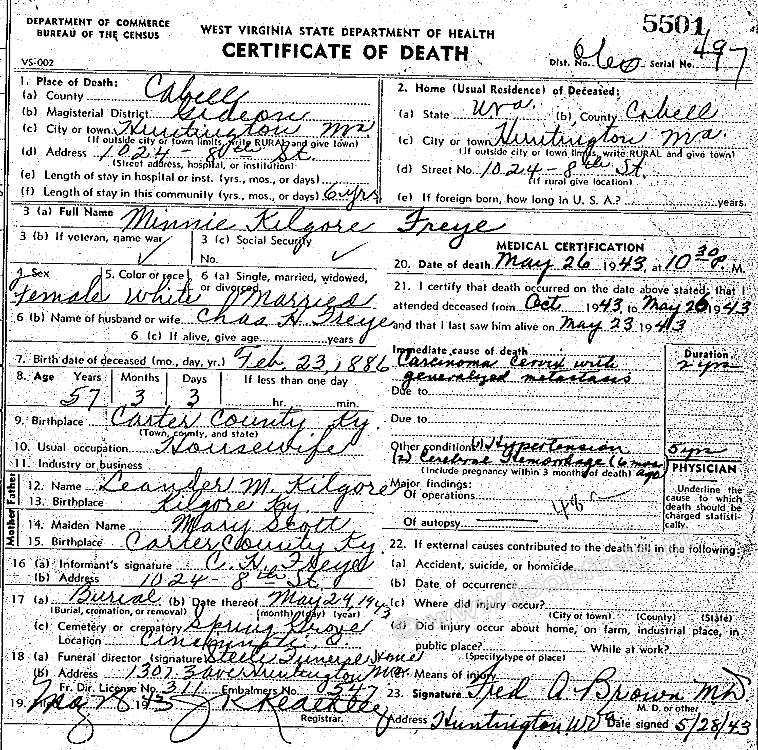 DEPARTMENT OF COMMERCE
BUREAU OF THE CENSUS
WEST VIRGINIA STATE DEPARTMENT OF HEALTH
CERTIFICATE OF DEATH
5501
VS-002
Dist. No. Serial No. 497
1. Place of Death:
(a) County Cabell
(b) Magisterial District Gideon
(c) City or town Huntington
(If outside city or town limits, write RURAL and give town)
(d) Address 1024 - 8th St.
(Street address, hospital, or institution)
(e) Length of stay in hospital or inst. (yrs., mos., or days)
(f) Length of stay in this community (yrs., mos., or days) 6 yrs
2. Home (Usual Residence) of Deceased:
(a) State W Va. (b) County Cabell
(c) City or town Huntington
(If outside city or town limits, write RURAL and give town)
(d) Street No. 1024 - 8th St.
(If rural give location)
(e) If foreign born, how long in U. S. A.? years.
3 (a) Full Name Minnie Kilgore Freye
3 (b) If veteran, name war
3 (c) Social Security
No.
4. Sex
female
5. Color or race
White
6 (a) Single, married, widowed,
or divorced
Married
6 (b) Name of husband or wife Chas H Freye
6 (c) If alive, give age years
7. Birth date of deceased (mo., day, yr.) Feb. 23, 1886
8. Age Years Months Days If less than one day
57 3 3 hr. min.
9. Birthplace Carter County Ky.
(Town, county, and state)
10. Usual occupation Housewife
11. Industry or business
Father
12. Name Leander M. Kilgore
13. Birthplace Kilgore Ky.
Mother
14. Maiden Name Mary Scott
15. Birthplace Carter County Ky.
16 (a) Informant's signature C. H. Freye
(b) Address 1024 - 8th St.
17 (a) Burial (b) Date thereof May 29, 1943
(Burial, cremation or removal) (month) (day) (year)
(c) Cemetery or crematory Spring Grove
Location Cincinnati, O
18 (a) Funeral director (signature) Steele Funeral Home
(b) Address 1307 3 ave Huntington
Fr. Dir. License No. 311 Embalmers No. 347
19.
Registrar.
MEDICAL CERTIFICATION
20. Date of death May 26 1943, at 10 30 P. M.
21. I certify that death occurred on the date above stated; that I
attended deceased from Oct 1943 to May 26 1943
and that I last saw him alive on May 23 1943
Immediate cause of death
Carcinoma Cervix with
generalized metastasis
Duration
2 yrs
Due to
Due to
Other conditions (1) Hypertension 5 yrs
(2) Cerebral Hemorrhage (6 mos ago)
(Include pregnancy within 3 months of death)
Major findings:
Of operations
48
Of autopsy
PHYSICIAN
Underline the cause to which death should be charged statistically.
22. If external causes contributed to the death fill in the following:
(a) Accident, suicide, or homicide
(b) Date of occurrence
(c) Where did injury occur?
(City or town) (County) (State)
(d) Did injury occur about home, on farm, industrial place, in
public place? While at work?
(Specify type of place)
Means of injury
23. Signature Fred A Brown MD
M. D. or other
Address Huntington W Va Date signed 5/28/43